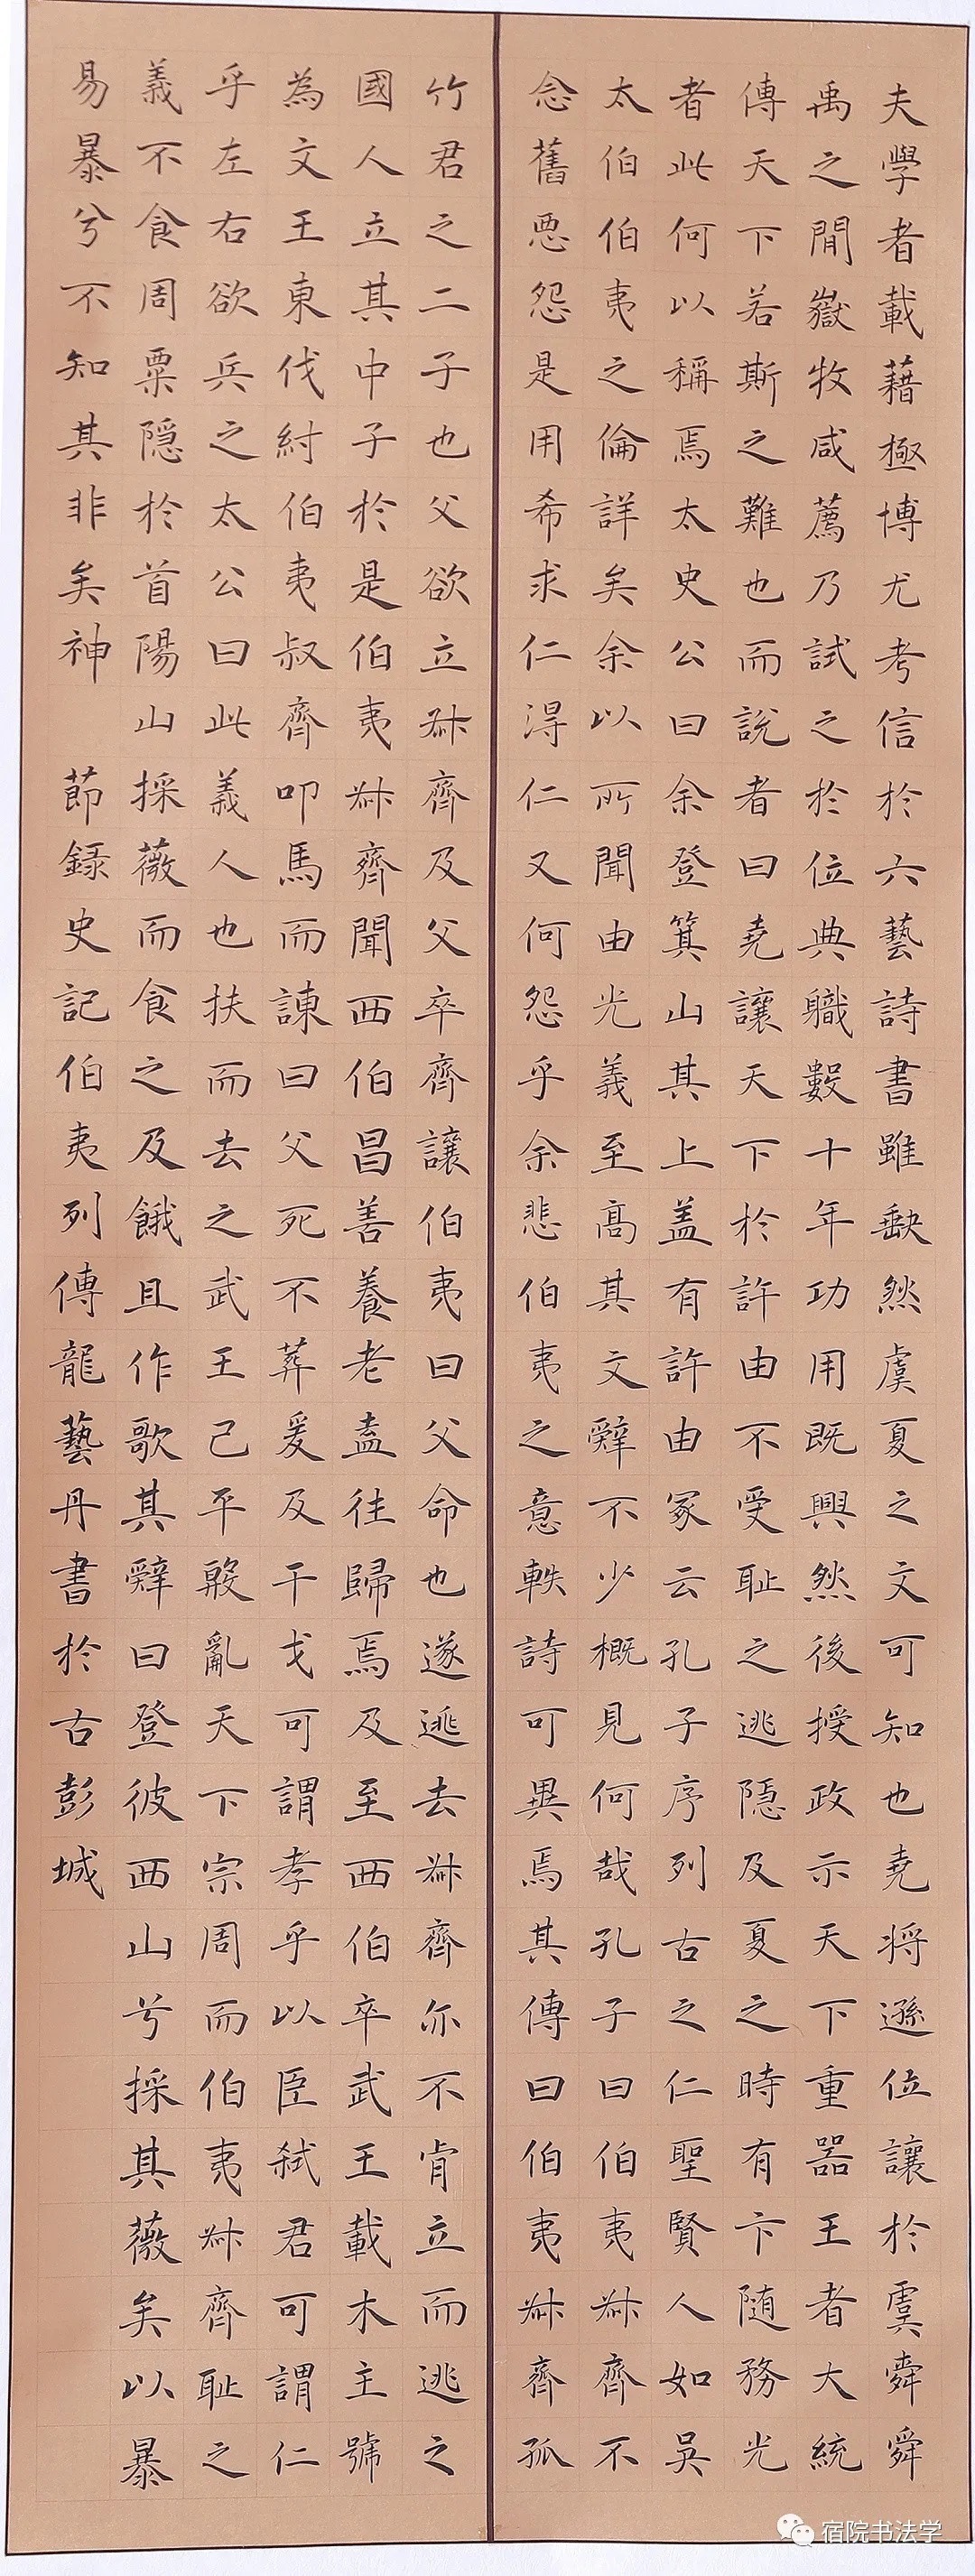 夫學者載藉極博尤考信於六藝詩書雖缺然虞夏之文可知也堯將遜位讓於虞舜舜
禹之間嶽牧咸薦乃試之於位典職數十年功用既興然後授政示天下重器王者大統
傳天下若斯之難也而說者曰堯讓天下於許由不受恥之逃隱及夏之時有卞随務光
者此何以稱焉太史公曰余登箕山其上盖有許由冢云孔子序列古之仁聖賢人如吳
太伯伯夷之倫詳矣余以所聞由光義至高其文辭不少概見何哉孔子曰伯夷叔齊不
念舊惡怨是用希求仁得仁又何怨乎余悲伯夷之意軼詩可異焉其傳曰伯夷叔齊孤
竹君之二子也父欲立叔齊及父卒齊讓伯夷曰父命也遂逃去叔齊亦不肯立而逃之
國人立其中子於是伯夷叔齊聞西伯昌善養老盍往歸焉及至西伯卒武王載木主號
為文王東伐紂伯夷叔齊叩馬而諫曰父死不葬爰及干戈可謂孝乎以臣弑君可謂仁
乎左右欲兵之太公曰此義人也扶而去之武王已平殷亂天下宗周而伯夷叔齊恥之
義不食周粟隱於首陽山採薇而食之及餓且作歌其辭曰登彼西山兮採其薇矣以暴
易暴兮不知其非矣神 節録史記伯夷列傳龍藝丹書於古彭城
宿院书法学